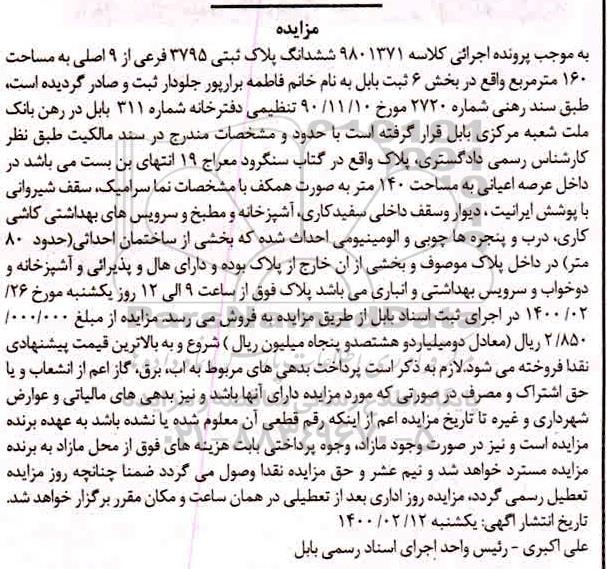 مزایده
به موجب پرونده اجرائی کلاسه ۹۸۰۱۳۷۱ ششدانگ پلاک ثبتی ۳۷۹۵ فرعی از ۹ اصلی به مساحت
۱۶۰ مترمربع واقع در بخش ۶ ثبت بابل به نام خانم فاطمه برارپور جلودار ثبت و صادر گردیده است،
طبق سند رهنی شماره ۲۷۲۰ مورخ ۹۰/۱۱/۱۰ تنظیمی دفترخانه شماره ۳۱۱ بابل در رهن بانک
ملت شعبه مرکزی بابل قرار گرفته است با حدود و مشخصات مندرج در سند مالکیت طبق نظر
کارشناس رسمی دادگستری، پلاک واقع در گتاب سنگرود معراج ۱۹ انتهای بن بست می باشد در
داخل عرصه اعیانی به مساحت ۱۴۰ متر به صورت همکف با مشخصات نما سرامیک، سقف شیروانی
با پوشش ایرانیت ، دیوار وسقف داخلی سفیدکاری، آشپزخانه و مطبخ و سرویس های بهداشتی کاشی
کاری، درب و پنجره ها چوبی و الومینیومی احداث شده که بخشی از ساختمان احداثی(حدود ۸۰
متر) در داخل پلاک موصوف و بخشی از ان خارج از پلاک بوده و دارای هال و پذیرائی و آشپزخانه و
دوخواب و سرویس بهداشتی و انباری می باشد پلاک فوق از ساعت ۹ الی ۱۲ روز یکشنبه مورخ ۲۶/
۱۴۰۰/۰۲ در اجرای ثبت اسناد بابل از طریق مزایده به فروش می رسد. مزایده از مبلغ ۰۰۰/۰۰۰/
۲/۸۵۰ ریال (معادل دومیلیاردو هشتصدو پنجاه میلیون ریال ) شروع و به بالاترین قیمت پیشنهادی
نقدا فروخته می شود.لازم به ذکر است پرداخت بدهی های مربوط به اب، برق، گاز اعم از انشعاب و یا
حق اشتراک و مصرف در صورتی که مورد مزایده دارای آنها باشد و نیز بدهی های مالیاتی و عوارض
شهرداری و غیره تا تاریخ مزایده اعم از اینکه رقم قطعی آن معلوم شده یا نشده باشد به عهده برنده
مزایده است و نیز در صورت وجود مازاد، وجوه پرداختی بابت هزینه های فوق از محل مازاد به برنده
مزایده مسترد خواهد شد و نیم عشر و حق مزایده نقدا وصول می گردد ضمنا چنانچه روز مزایده
تعطیل رسمی گردد، مزایده روز اداری بعد از تعطیلی در همان ساعت و مکان مقرر برگزار خواهد شد.
تاریخ انتشار اگهی: یکشنبه ۱۴۰۰/۰۲/۱۲
علی اکبری - رئیس واحد اجرای اسناد رسمی بابل
ParsNamadData
۰۲۱-۸۸۳۴۹۶۷۰-۵